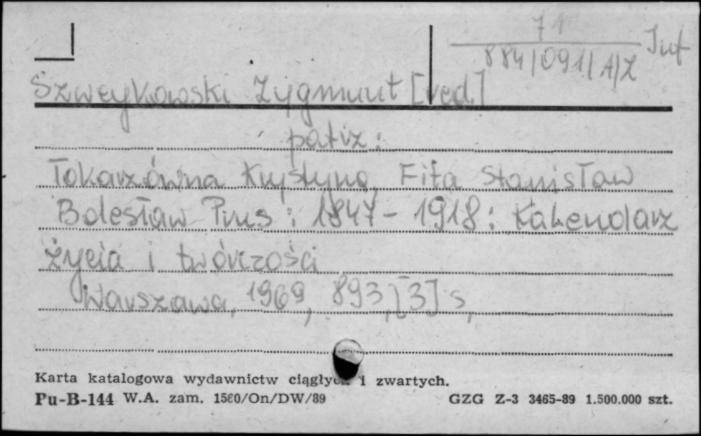 71
884/091/A/Z Inf
Szweykowski Zygmunt [red.]
patrz:
Tokarzówna Krystyna, Fita Stanisław
Bolesław Prus: 1847-1918: Kalendarz
życia i twórczości
Warszawa, 1969, 893,[3] s,
Karta katalogowa wydawnictw ciągłych i zwartych.
Pu-B-144 W.A. zam. 1560/On/DW/89 GZG Z-3 3465-89 1.500.000 szt.